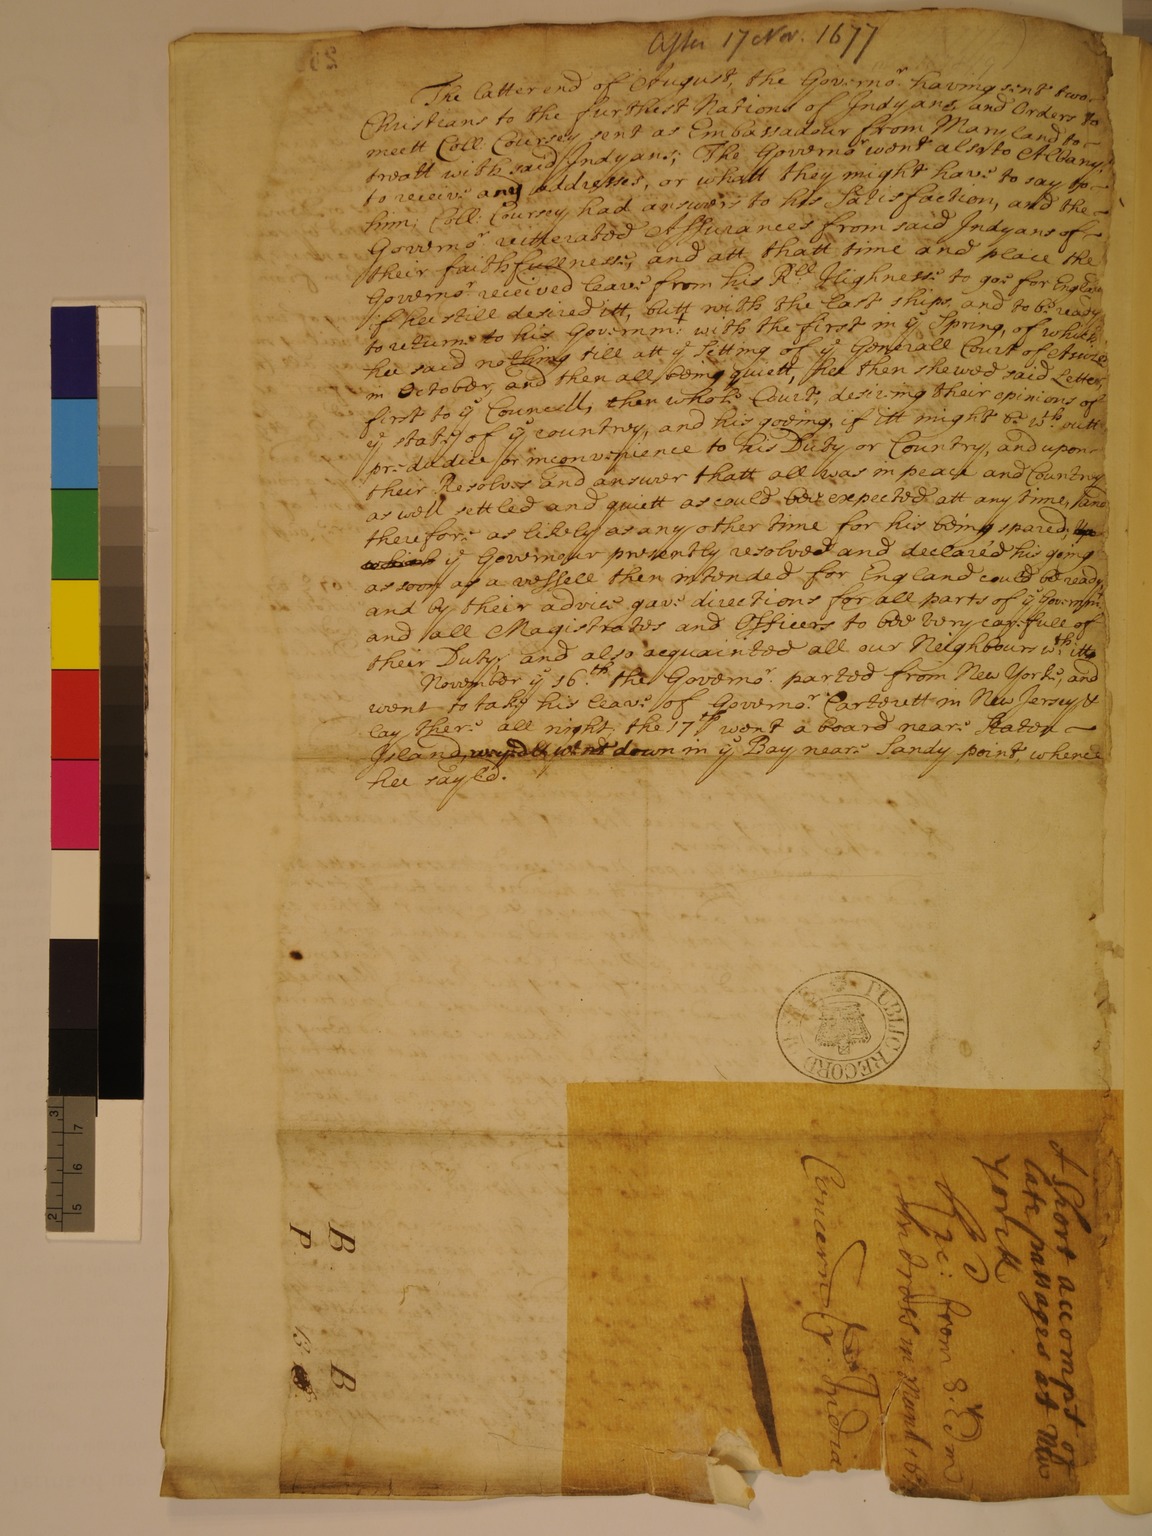 After 17 Nov. 1677
The latter end of August, the Governor having sent two
Christians to the furthest Nations of Indyans, and Orders to
meett Coll: Coursey sent as Embassadour from Maryland to
treatt with said Indyans; The Governor went also to Albany,
to receive any addresses, or whatt they might have to say to
him; Coll: Coursey had answers to his Satisfaction, and the
Governor reitterated Assurances from said Indyans of
their faithfullnesse, and att thatt time and place the
Governor received leave from his Rll Highnesse to goe for England
if hee still desired itt, butt with the last ships, and to be ready
to returne to his Governmt: with the first in ye Spring, of which
hee said nothing till att ye Sitting of ye Generall Court of Assizes
in October, and then all being quiett, hee then shewed said Letter,
first to ye Councell, then whole Court, desiring their opinions of
ye state of ye country, and his goeing, if itt might be wthoutt
prejudice or inconvenience to his Duty or Country, and upon
their Resolves and answer thatt all was in peace and Country
as well settled and quiett as could bee expected att any time, and
therefore as likely as any other time for his being spared,
ye Governour presently resolved and declared his going
as soon as a vessell then intended for England could be ready,
and by their advice gave directions for all parts of ye Governmt
and all Magistrates and Officers to bee very carefull of
their Duty, and also acquainted all our Neighbours wth itt.
November ye 16th. the Governor. parted from New Yorke, and
went to take his leave of Governor: Carterett in New Jersey, &
lay there all night, the 17th went a board neare Staten
Island, went down in ye Bay neare Sandy point, whence
hee sayled.
PUBLIC RECORD
A Short accompt of
late passages at New
Yorke
Rec: from Sr. Edm
Andross in March 167
Concern
India
B. B
P. B.